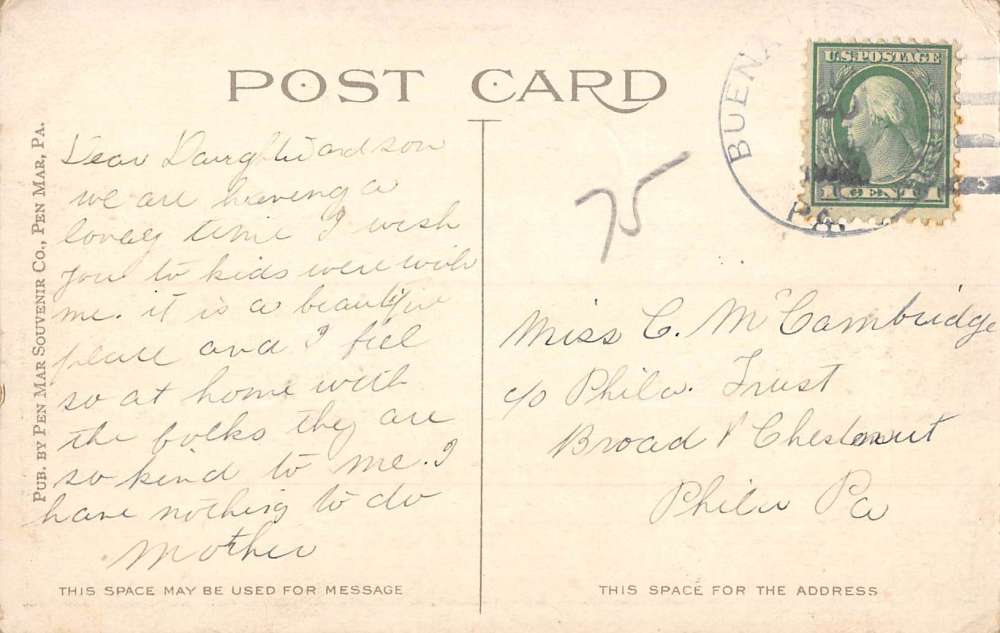 POST CARD
U.S. POSTAGE
1 CENT 1
BUENA
PA.
75
PUB. BY PEN MAR SOUVENIR CO., PEN MAR, PA.
Dear Daughter and son
we are having a
lovely time I wish
you to kids were with
me. it is a beautiful
place and I feel
so at home with
the folks they are
so kind to me. I
have nothing to do
Mother
Miss C. McCambridge
c/o Phila. Trust
Broad & Chestnut
Phila Pa
THIS SPACE MAY BE USED FOR MESSAGE
THIS SPACE FOR THE ADDRESS